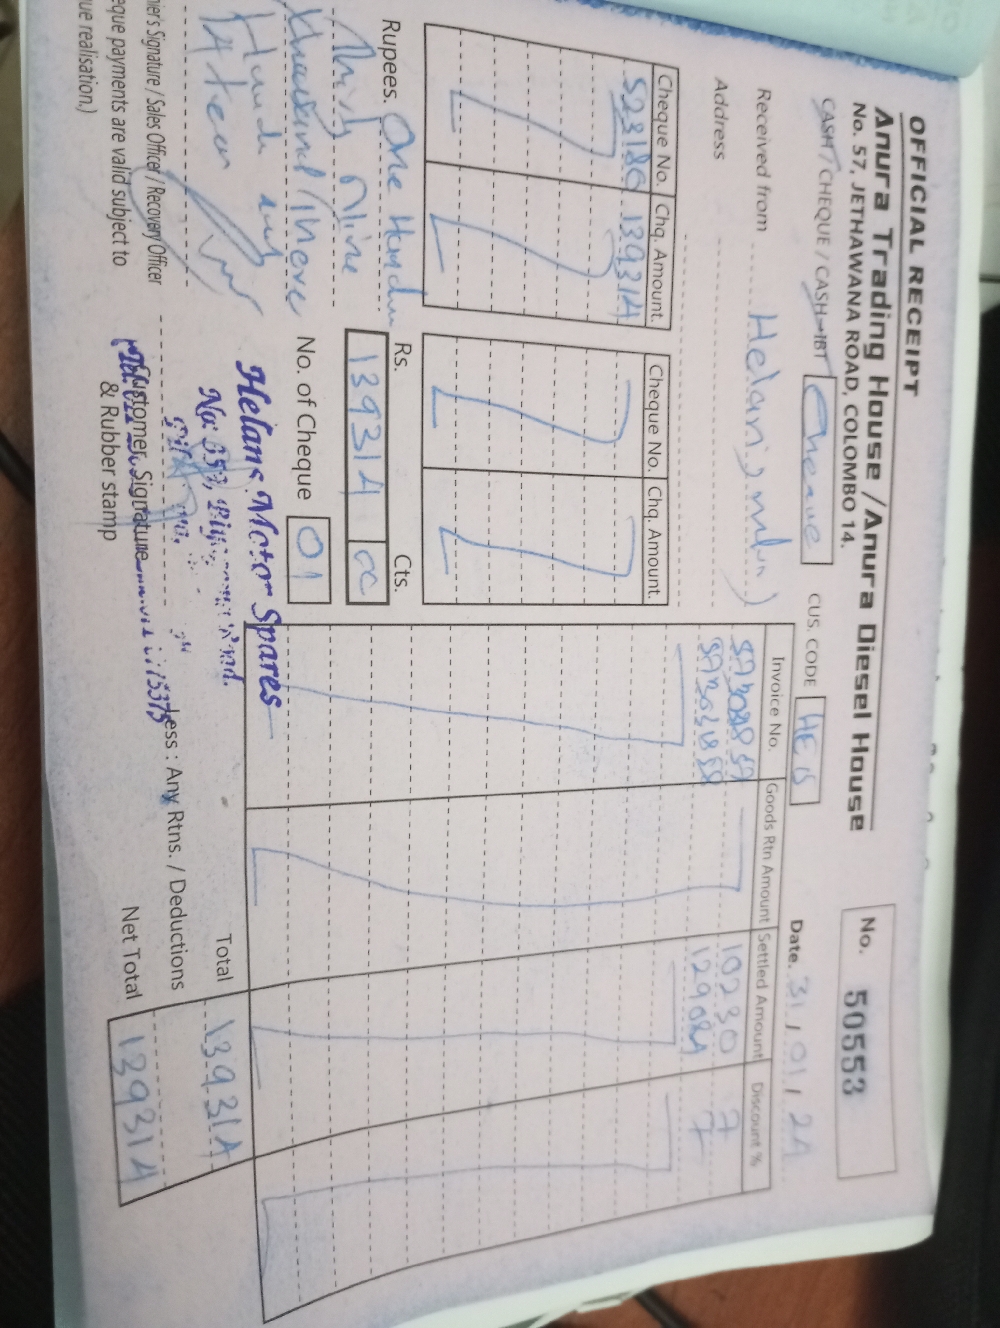 OFFICIAL RECEIPT
Anura Trading House / Anura Diesel House
No. 57, JETHAWANA ROAD, COLOMBO 14.
No. 50553
CASH / CHEQUE / CASH-IBT Cheque CUS. CODE
Date. 31 / 01 / 24
Received from
Address
Cheque No. Chq. Amount. Cheque No. Chq. Amount.
523180 139314
Invoice No. Goods Rtn Amount Settled Amount Discount %
10230 7
129084 7
Rupees. One Hundred
Thirty Nine
Thousand Three
Hundred and
Rs. Cts.
139314 00
No. of Cheque 01
Helans Motor Spares
Total 139314
Less : Any Rtns. / Deductions
Net Total 139314
ier's Signature / Sales Officer / Recovery Officer
Customer Signature
& Rubber stamp
eque payments are valid subject to
ue realisation.)